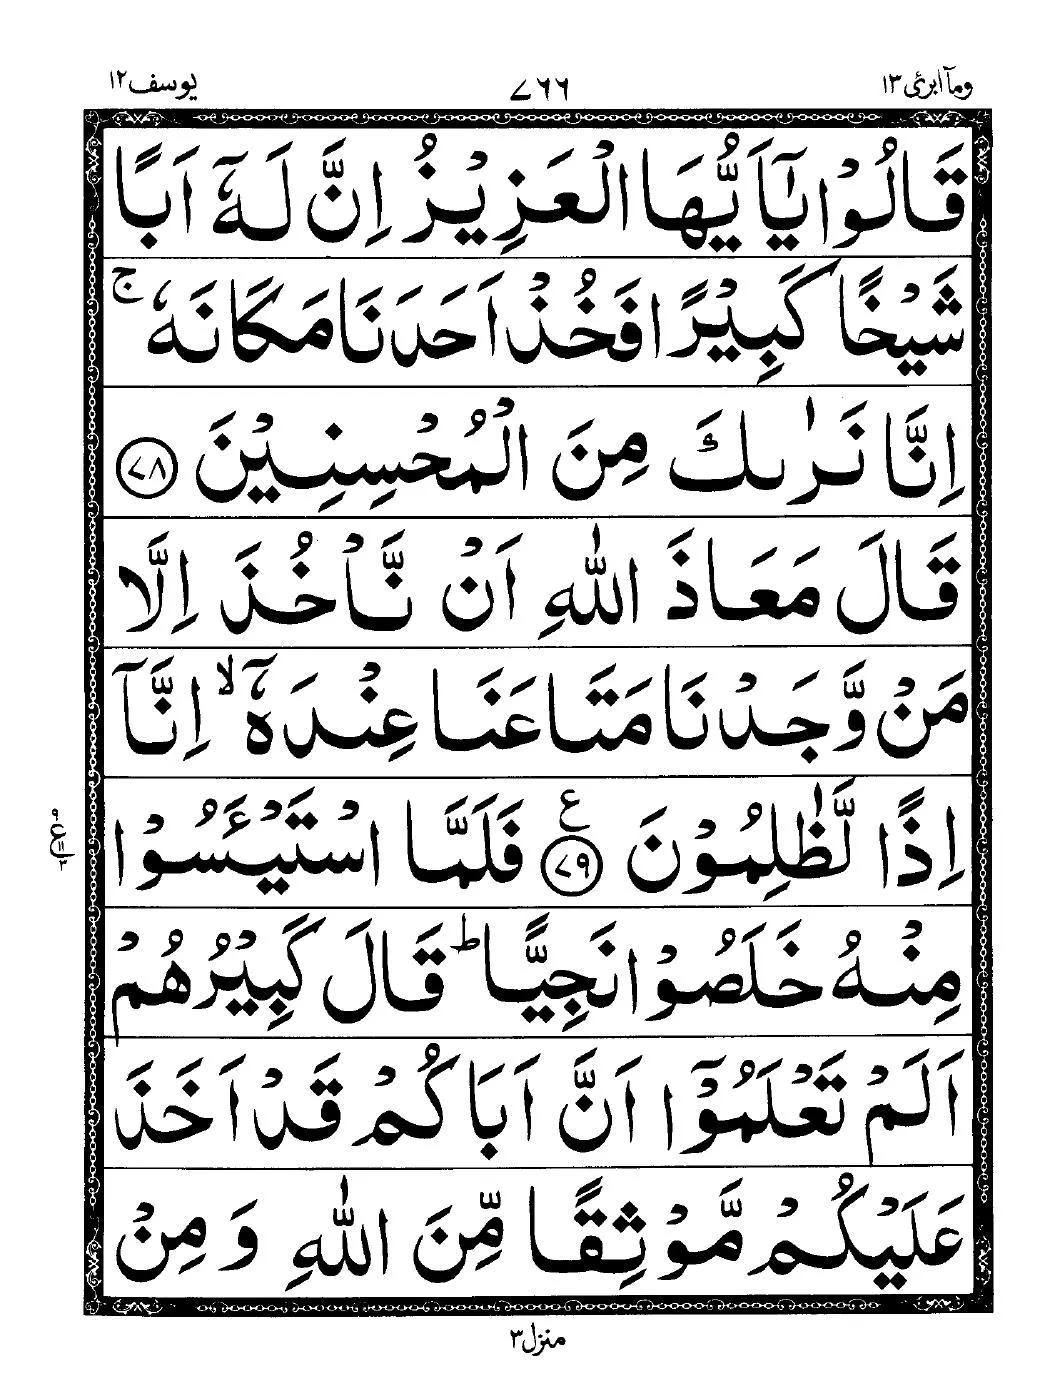 ومآ ابرئ ١٣ ٧٦٦ يوسف ١٢
قَالُوْا يٰۤاَيُّهَا الْعَزِيْزُ اِنَّ لَهٗۤ اَبًا
شَيْخًا كَبِيْرًا فَخُذْ اَحَدَنَا مَكَانَهٗ ۚ
اِنَّا نَرٰىكَ مِنَ الْمُحْسِنِيْنَ ٧٨
قَالَ مَعَاذَ اللّٰهِ اَنْ نَّاْخُذَ اِلَّا
مَنْ وَّجَدْنَا مَتَاعَنَا عِنْدَهٗۤ ۙ اِنَّاۤ
اِذًا لَّظٰلِمُوْنَ ٧٩ ع فَلَمَّا اسْتَيْـَٔسُوْا
مِنْهُ خَلَصُوْا نَجِيًّا ؕ قَالَ كَبِيْرُهُمْ
اَلَمْ تَعْلَمُوْۤا اَنَّ اَبَاكُمْ قَدْ اَخَذَ
عَلَيْكُمْ مَّوْثِقًا مِّنَ اللّٰهِ وَمِنْ
منزل ٣